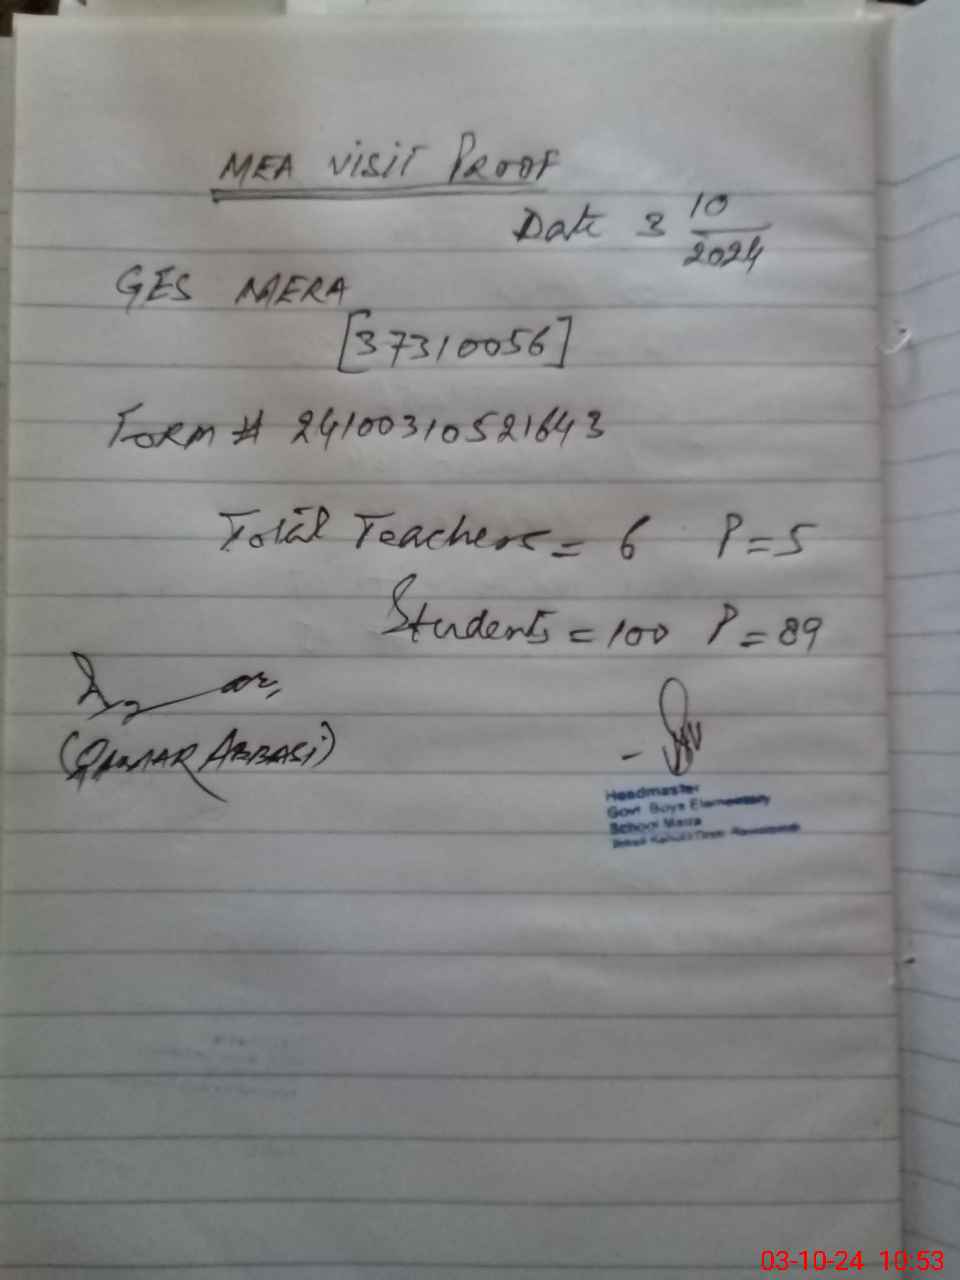 MEA Visit Proof
Date 3 10/2024
GES MERA
[37310056]
Form # 24100310521643
Total Teachers = 6 P = 5
Students = 100 P = 89
(QAMAR ABBASI)
Headmaster
Govt Boys Elementary
School Maira
03-10-24 10:53